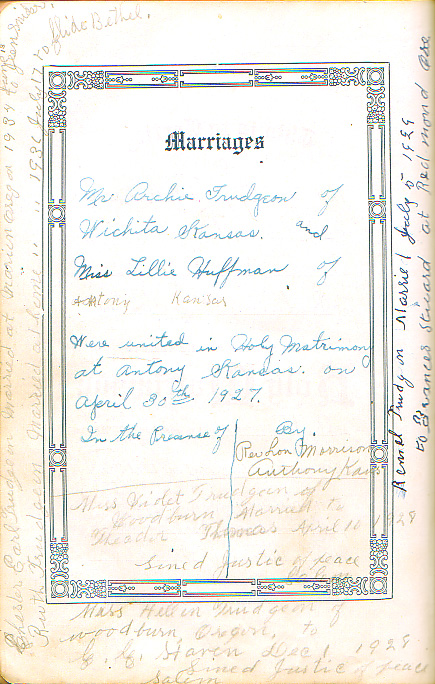 Marriages
Mr Archie Trudgeon of
Wichita Kansas. and
Miss Lillie Huffman of
Antony Kansas
Were united in Holy Matrimony
at Antony Kansas. on
April 30th 1927.
In the Presense of By.
Rev Lon Morrison
Anthony Kans
Miss Violet Trudgeon of
Woodburn Married to
Theador Thomas April 10 1928
Sined Justic of peace
Miss Hellen Trudgeon of
Woodburn, Oregon, to
C. C. Haven Dec 1 1928
Sined Justic of peace
Salem
Chester Earl Trudgeon Married at 1934
Ruth Trudgeon Married at home 1936 July 17 to
Bethel.
Trudgon Married July 5 1929
to Frances at Redmond Ore